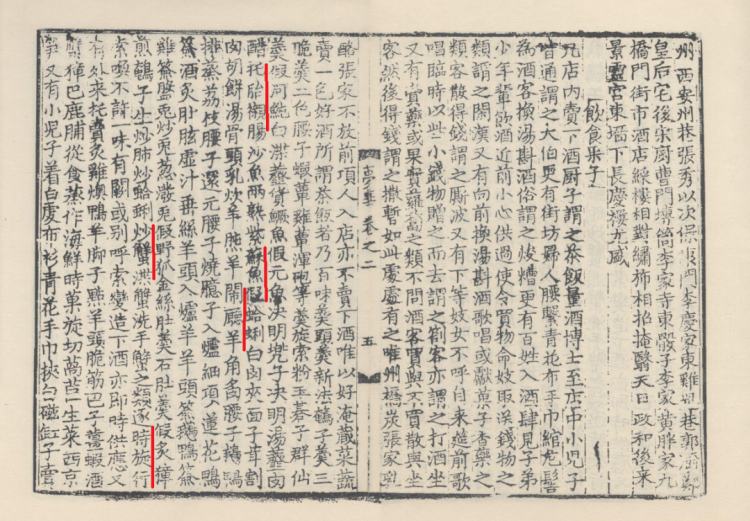 州西安州巷張秀以次保康門李慶家東雞兒巷郭廚鄭
皇后宅後宋厨曹門塼筒李家寺東骰子李家黃胖家九
橋門街市酒店綵樓相對繡旆相招掩翳天日政和後來
景靈宮東墻下長慶樓尤盛
飲食果子
凡店內賣下酒厨子謂之茶飯量酒博士至店中小兒子
皆通謂之大伯更有街坊婦人腰繫青花布手巾綰危髻
為酒客換湯斟酒俗謂之焌糟更有百姓入酒肆見子弟
少年輩飲酒近前小心供過使令買物命妓取送錢物之
類謂之閑漢又有向前換湯斟酒歌唱或獻菓子香藥之
類客散得錢謂之厮波又有下等妓女不呼自來筵前歌
唱臨時以些小錢物贈之而去謂之劄客亦謂之打酒坐
又有賣藥或果實蘿蔔之類不問酒客買與不買散與坐
客然後得錢謂之撒暫如此處處有之唯州橋炭張家乳
夢華卷之二
五
酪張家不放前項人入店亦不賣下酒唯以好淹藏菜蔬
賣一色好酒所謂茶飯者乃百味羹頭羹新法鵪子羹三
脆羹二色腰子蝦蕈雞蕈渾砲等羹旋索粉玉棊子群仙
羹假河魨白渫虀貨鱖魚假元魚決明兜子決明湯虀肉
醋托胎襯腸沙魚兩熟紫蘇魚假蛤蜊白肉夾面子茸割
肉胡餅湯骨頭乳炊羊羊鬧廳羊角炙腰子鵝鴨
排蒸荔枝腰子還元腰子燒臆子入爐細項蓮花鴨
簽酒炙肚胘虛汁垂絲羊頭入爐羊羊頭簽鵝鴨簽
雞簽盤兔炒兔葱潑兔假野狐金絲肚羹石肚羹假炙獐
煎鵪子生炒肺炒蛤蜊炒蟹渫蟹洗手蟹之類逐時旋行
索喚不許一味有闕或別呼索變造下酒亦即時供應又
有外來托賣炙雞燠鴨羊脚子點羊頭脆筋巴子薑蝦酒
蟹獐巴鹿脯從食蒸作海鮮時菓旋切萵苣生菜西京
笋又有小兒子着白虔布衫青花手巾挾白磁缸子賣